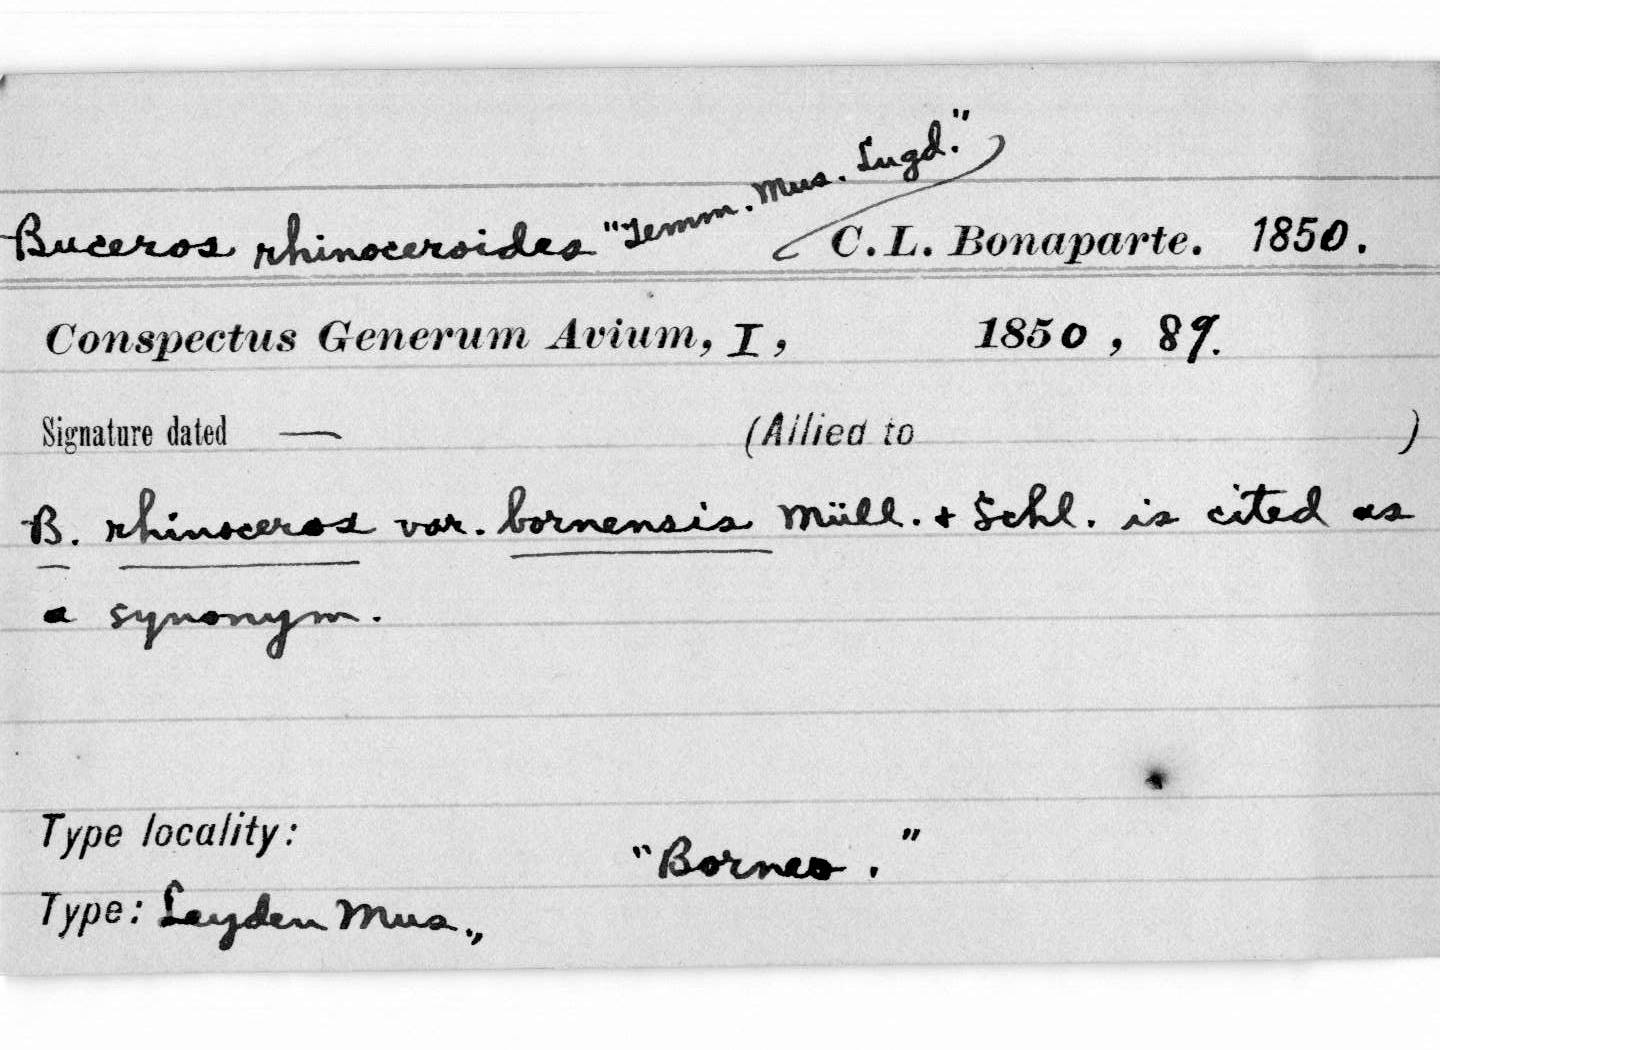 Buceros rhinoceroides "Temm. Mus. Lugd." C. L. Bonaparte. 1850.
Conspectus Generum Avium, I, 1850, 89.
Signature dated — (Allied to )
B. rhinoceros var. bornensis Müll. + Schl. is cited as
a synonym.
Type locality: "Borneo."
Type: Leyden Mus.,